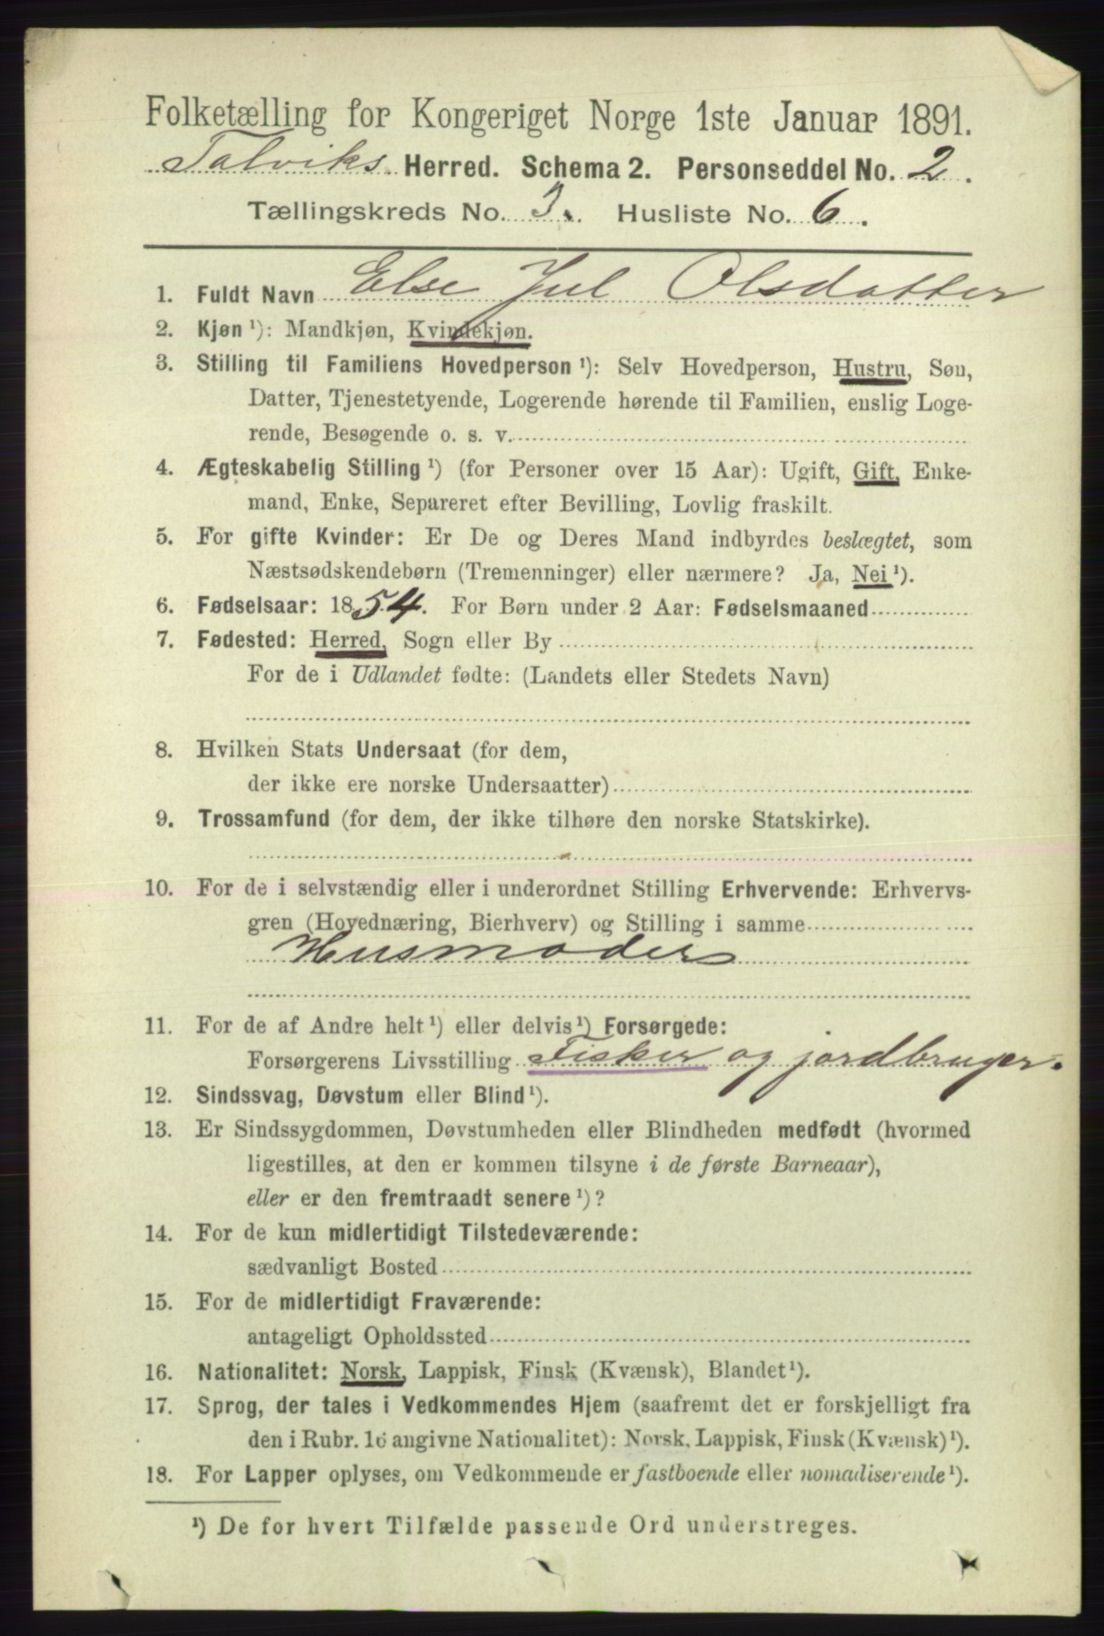 Folketælling for Kongeriget Norge 1ste Januar 1891.
Talviks Herred. Schema 2. Personseddel No. 2.
Tællingskreds No. 3. Husliste No. 6.
1. Fuldt Navn Else Jul Olsdatter
2. Kjøn ¹): Mandkjøn, Kvindekjøn.
3. Stilling til Familiens Hovedperson ¹): Selv Hovedperson, Hustru, Søn,
Datter, Tjenestetyende, Logerende hørende til Familien, enslig Loge-
rende, Besøgende o. s. v.
4. Ægteskabelig Stilling ¹) (for Personer over 15 Aar): Ugift, Gift, Enke-
mand, Enke, Separeret efter Bevilling, Lovlig fraskilt.
5. For gifte Kvinder: Er De og Deres Mand indbyrdes beslægtet, som
Næstsødskendebørn (Tremenninger) eller nærmere? Ja, Nei ¹).
6. Fødselsaar: 1854. For Børn under 2 Aar: Fødselsmaaned
7. Fødested: Herred, Sogn eller By
For de i Udlandet fødte: (Landets eller Stedets Navn)
8. Hvilken Stats Undersaat (for dem,
der ikke ere norske Undersaatter)
9. Trossamfund (for dem, der ikke tilhøre den norske Statskirke).
10. For de i selvstændig eller i underordnet Stilling Erhvervende: Erhvervs-
gren (Hovednæring, Bierhverv) og Stilling i samme
Husmoders
11. For de af Andre helt ¹) eller delvis ¹) Forsørgede:
Forsørgerens Livsstilling Fisker og jordbruger.
12. Sindssvag, Døvstum eller Blind ¹).
13. Er Sindssygdommen, Døvstumheden eller Blindheden medfødt (hvormed
ligestilles, at den er kommen tilsyne i de første Barneaar),
eller er den fremtraadt senere ¹)?
14. For de kun midlertidigt Tilstedeværende:
sædvanligt Bosted
15. For de midlertidigt Fraværende:
antageligt Opholdssted
16. Nationalitet: Norsk, Lappisk, Finsk (Kvænsk), Blandet ¹).
17. Sprog, der tales i Vedkommendes Hjem (saafremt det er forskjelligt fra
den i Rubr. 16 angivne Nationalitet): Norsk, Lappisk, Finsk (Kvænsk) ¹).
18. For Lapper oplyses, om Vedkommende er fastboende eller nomadiserende ¹).
¹) De for hvert Tilfælde passende Ord understreges.